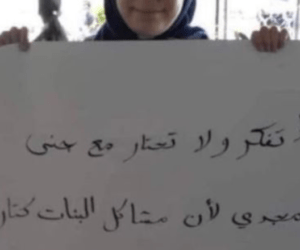 تفكر ولا تحتار مع حنى
مجدي لأن مشاكل البنات كتار